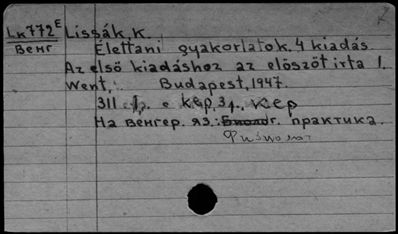 Lк772ᴱ Lissák, K.
Венг Élettani gyakorlatok. 4 kiadás
Az első kiadáshoz az előszót irta I.
Went, Budapest, 1947.
311 с кер, 3 г, кер
На венгер. яз.: Биолог. практика.
Физиолог